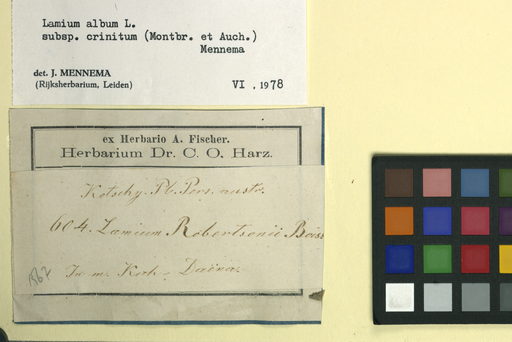 Lamium album L.
subsp. crinitum (Montbr. et Auch.)
Mennema
det. J. MENNEMA
(Rijksherbarium, Leiden)
VI . 1978
ex Herbario A. Fischer.
Herbarium Dr. C. O. Harz.
Kotschy. Pl. Pers. austr.
604. Lamium Robertsonii Boiss
In m. Kuh - Daëna.
1867